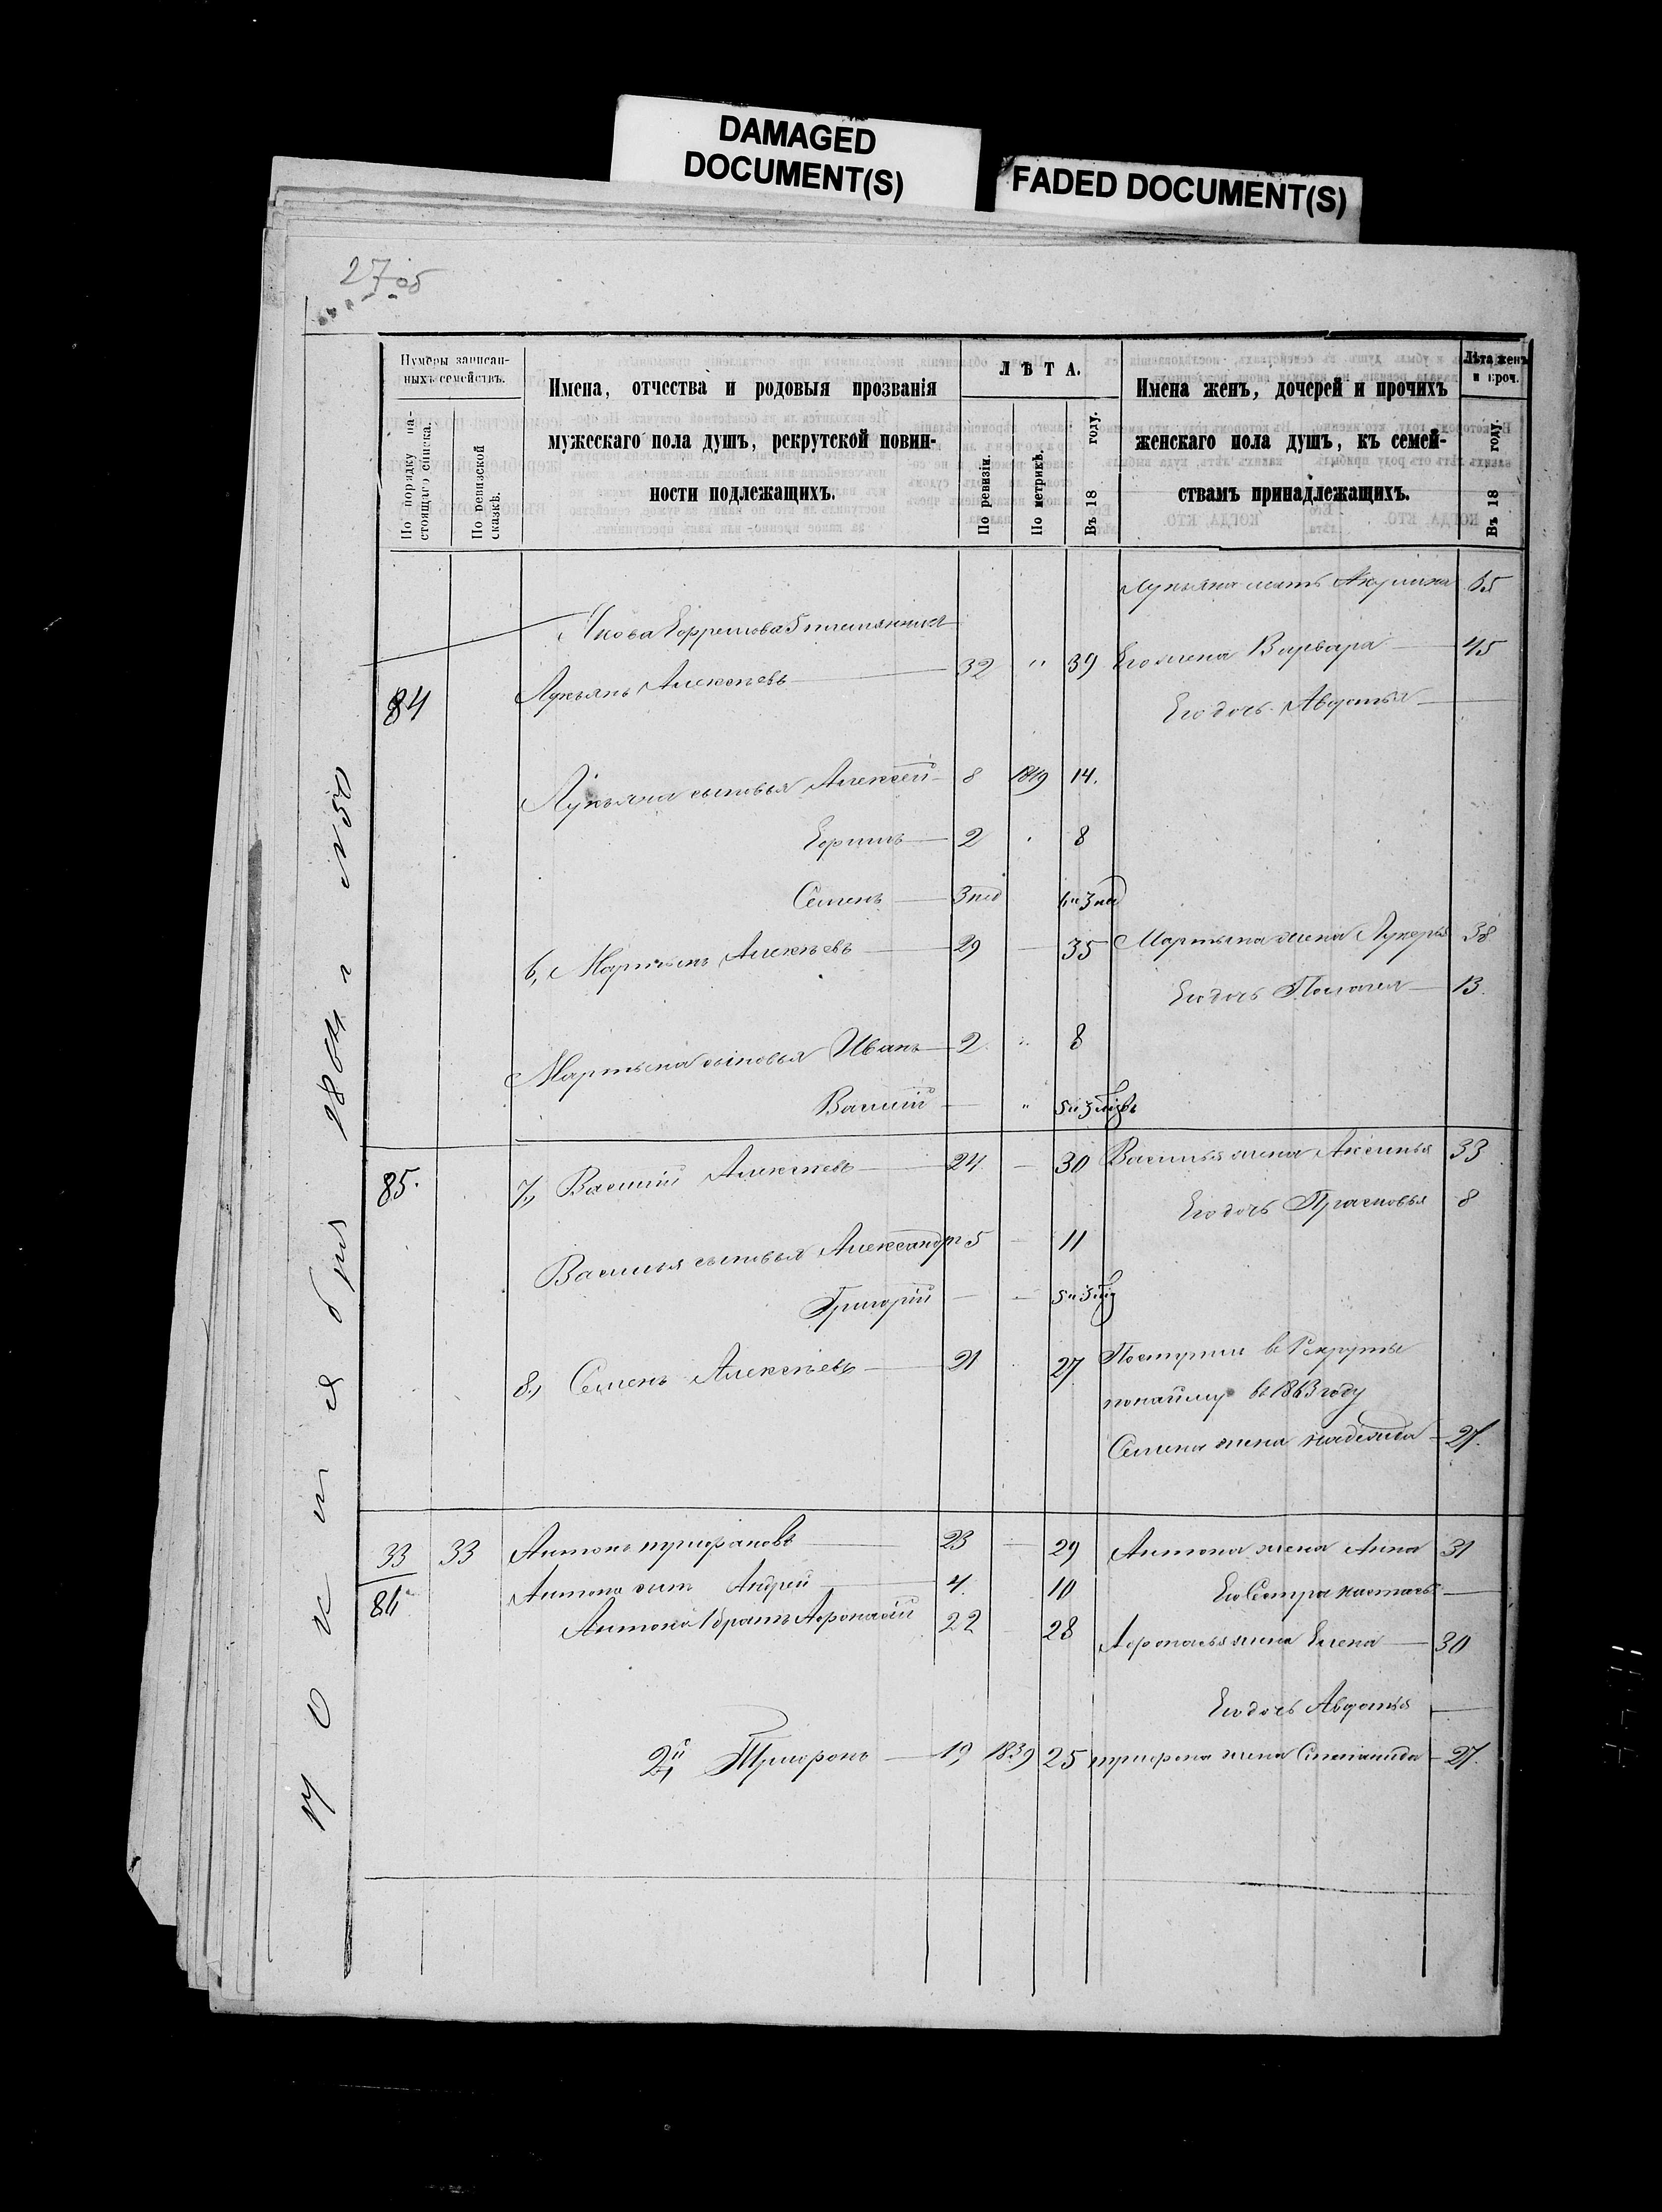 DAMAGED
DOCUMENT(S)
FADED DOCUMENT(S)
27 об
Нумеры записан-
ныхъ семействъ.
По порядку на-
стоящаго списка.
По ревизской
сказкѣ.
Имена, отчества и родовыя прозванія
мужескаго пола душъ, рекрутской повин-
ности подлежащихъ.
ЛѢТА.
По ревизіи.
По метрикѣ.
Въ 18 году.
Имена женъ, дочерей и прочихъ
женскаго пола душъ, къ семей-
ствамъ принадлежащихъ.
Лѣта женъ
и проч.
Въ 18 году.
Лукьяна мать Акулина 65
Якова Ефремова 5 племянникъ
84 Лукьянъ Алексѣевъ 32 " 39 Его жена Варвара 45
Его дочь Авдотья
Лукьяна сыновья Алексѣй 8 1849 14.
Ефимъ 2 8
Семенъ 3 нед
6, Мартынъ Алексѣевъ 29 — 35 Мартына жена Лукерья 38
Его дочь Пелагея 13.
Мартына сыновья Иванъ 2. 8
Василій — "
85. 7, Василій Алексѣевъ 24 — 30 Василья жена Аксинья 33
Его дочь Прасковья 8
Василья сыновья Александръ 5 — 11
Григорій — —
8, Семенъ Алексѣевъ 21 27 Поступил в Рекруты
по найму въ 1863 году
Семена жена надежда 27.
33 33 Антонъ трифановъ 23 — 29 Антона жена Анна 31
86 Антона сынъ Андрей 4. 10 Его Сестра настасья —
Антона 1 братъ Афонасій 22 28 Афонасья жена Елена 30
Его дочь Авдотья —
2й, Трифонъ 19 1839 25 трифона жена Степанида 27.
Ноября 1864 г №50